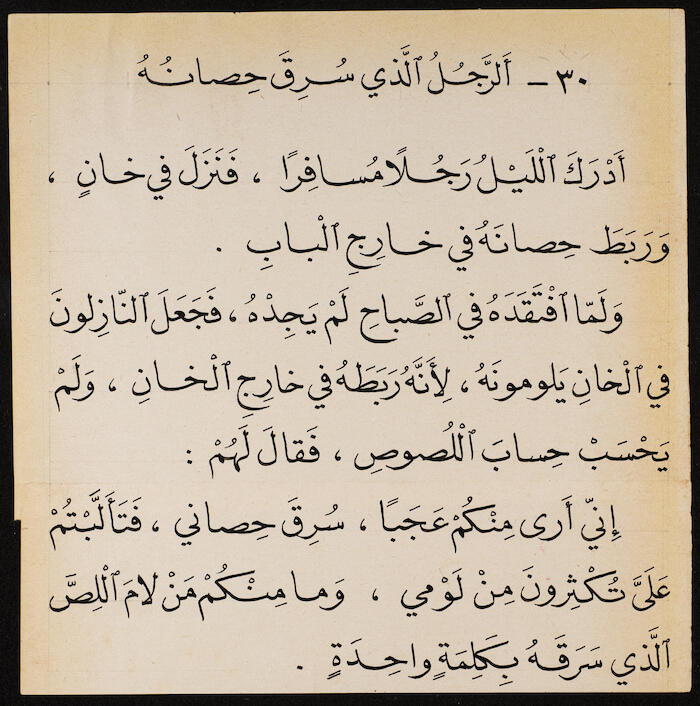 ٣٠ ـ أَلرَّجُلُ ٱلَّذي سُرِقَ حِصانُهُ
أَدْرَكَ ٱللَّيْلُ رَجُلًا مُسافِرًا ، فَنَزَلَ في خانٍ ،
وَرَبَطَ حِصانَهُ في خارِجِ ٱلْبابِ .
وَلَمّا ٱفْتَقَدَهُ في ٱلصَّباحِ لَمْ يَجِدْهُ ، فَجَعَلَ ٱلنّازِلونَ
في ٱلْخانِ يَلومونَهُ ، لِأَنَّهُ رَبَطَهُ في خارِجِ ٱلْخانِ ، وَلَمْ
يَحْسَبْ حِسابَ ٱللُّصوصِ ، فَقالَ لَهُمْ :
إِنّي أَرى مِنْكُمْ عَجَبًا ، سُرِقَ حِصاني ، فَتَأَلَّبْتُمْ
عَلَيَّ تُكْثِرونَ مِنْ لَوْمي ، وَما مِنْكُمْ مَنْ لامَ ٱللِّصَّ
ٱلَّذي سَرَقَهُ بِكَلِمَةٍ واحِدَةٍ .